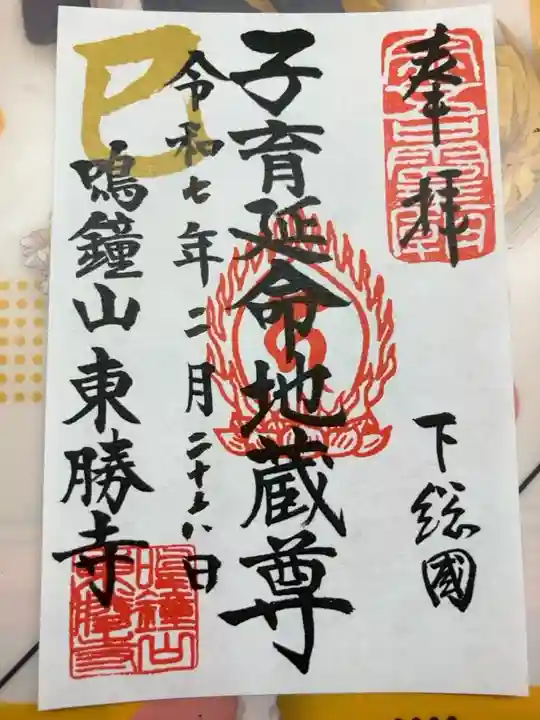 奉拝
下総國
子育延命地蔵尊
令和七年二月二十六日
巳
鳴鐘山東勝寺
鳴鐘山
東勝寺